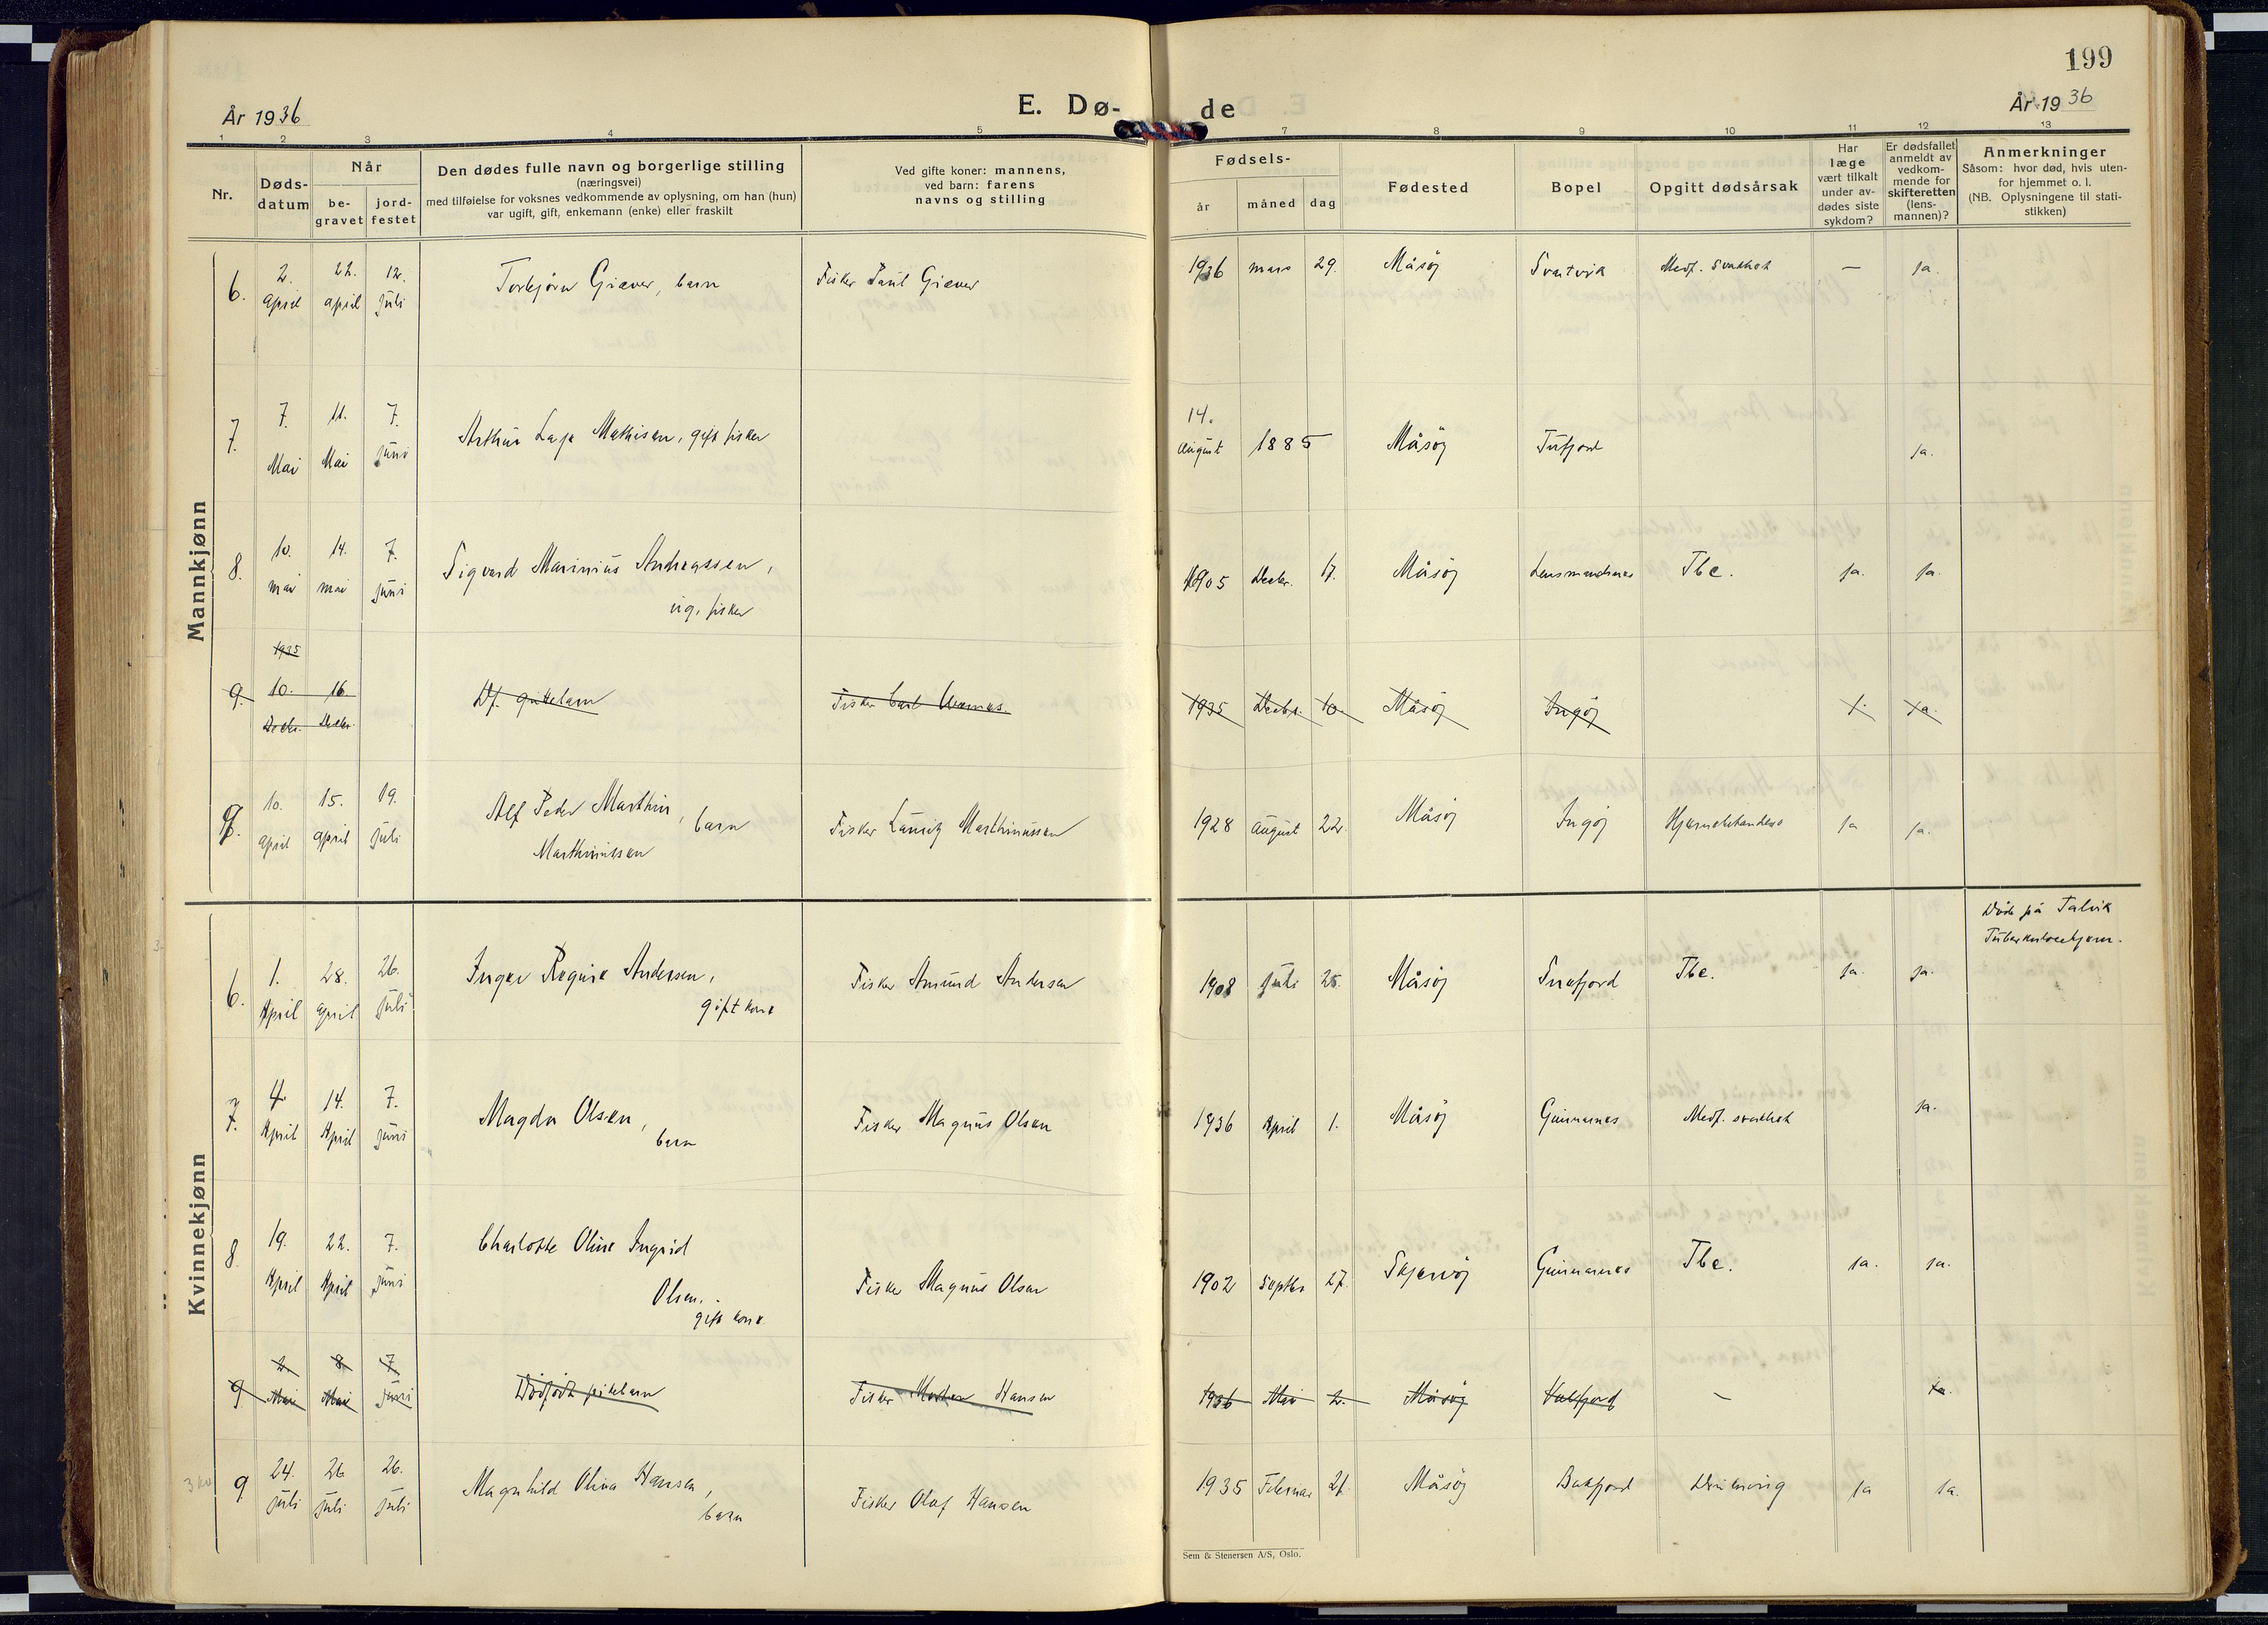 199
År 1936
E. Dø-
de
År 1936
1 2 3 4 5 7 8 9 10 11 12 13
Nr.
Døds-
datum
Når
be-
gravet
jord-
festet
Den dødes fulle navn og borgerlige stilling
(næringsvei)
med tilføielse for voksnes vedkommende av oplysning, om han (hun)
var ugift, gift, enkemann (enke) eller fraskilt
Ved gifte koner: mannens,
ved barn: farens
navns og stilling
Fødsels-
år
måned
dag
Fødested
Bopel
Opgitt dødsårsak
Har
læge
vært tilkalt
under av-
dødes siste
sykdom?
Er dødsfallet
anmeldt av
vedkom-
mende for
skifteretten
(lens-
mannen)?
Anmerkninger
Såsom: hvor død, hvis uten-
for hjemmet o. l.
(NB. Oplysningene til stati-
stikken)
Mannkjønn
6. 2. april 22. april 12. juli Torbjørn Giæver, barn Fisker Paul Giæver 1936 mars 29. Måsöy Svartvik Medf. svakhet — ja.
7. 7. Mai 11. Mai 7. juni Arthur Mathisen, gift fisker 14. august 1885 Måsöy Tufjord ja.
8. 10. mai 14. mai 7. juni Sigvard Marinius Andreassen,
ug. fisker 1905 Decbr. 17. Måsöy Tbc. ja. ja.
1935
9. 10. Decbr. 16. Decbr. Df. guttebarn Fisker Carl 1935 Decbr. 10. Måsöy Ingöy ja.
9. 10. april 15. april 19. juli Alf Peder Marthin, barn
Marthinussen Fisker Lauritz Marthinussen 1928 august 22. Måsöy Ingöy ja ja.
Kvinnekjønn
Död på Talvik
6. 1. April 28. april 26. juli Inger Regine Andersen,
gift kone Fisker Amund Andersen 1908 juli 25. Måsöy Snefjord Tbc. ja. ja.
7. 4. April 14. April 7. juni Magda Olsen,
barn Fisker Magnus Olsen 1936 April 1. Måsöy Gunnarnes Medf. svakhet ja.
8. 19. April 22. April 7. juni Charlotte Oline Ingrid
Olsen,
gift kone Fisker Magnus Olsen 1902 Septbr 27. Skjervöy Gunnarnes Tbc. ja. ja.
9 2. Mai 8. Mai 7. juni Dödfödt pikebarn Fisker Morten Hansen 1936 Mai 2. Måsöy — ja.
9 24. juli 26 juli 26. juli Magnhild Oliva Hansen,
barn Fisker Olaf Hansen 1935 Februar 21. Måsöy Bakfjord ja ja.
Sem & Stenersen A/S, Oslo.